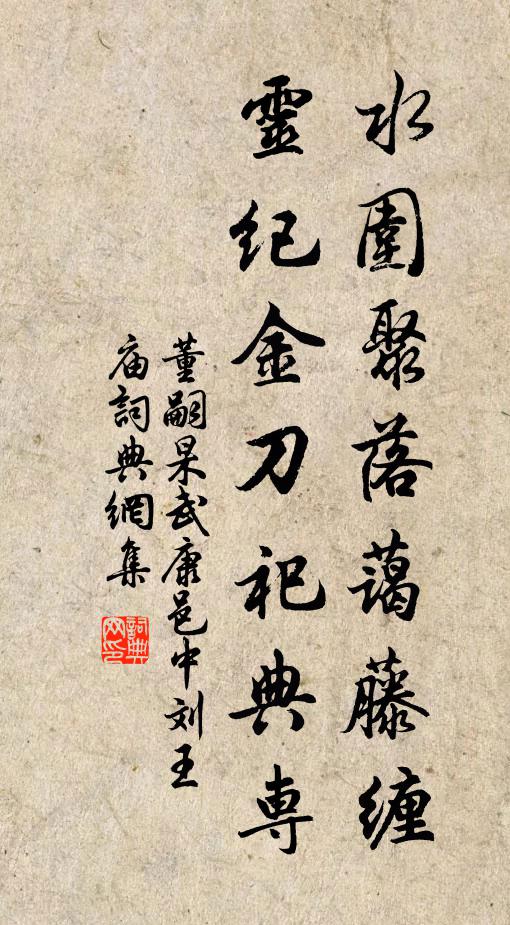 水圍聚落藹藤纏
靈紀金刀祀典専
董嗣杲武康邑中刘王
庙詞典網集
詞典網印